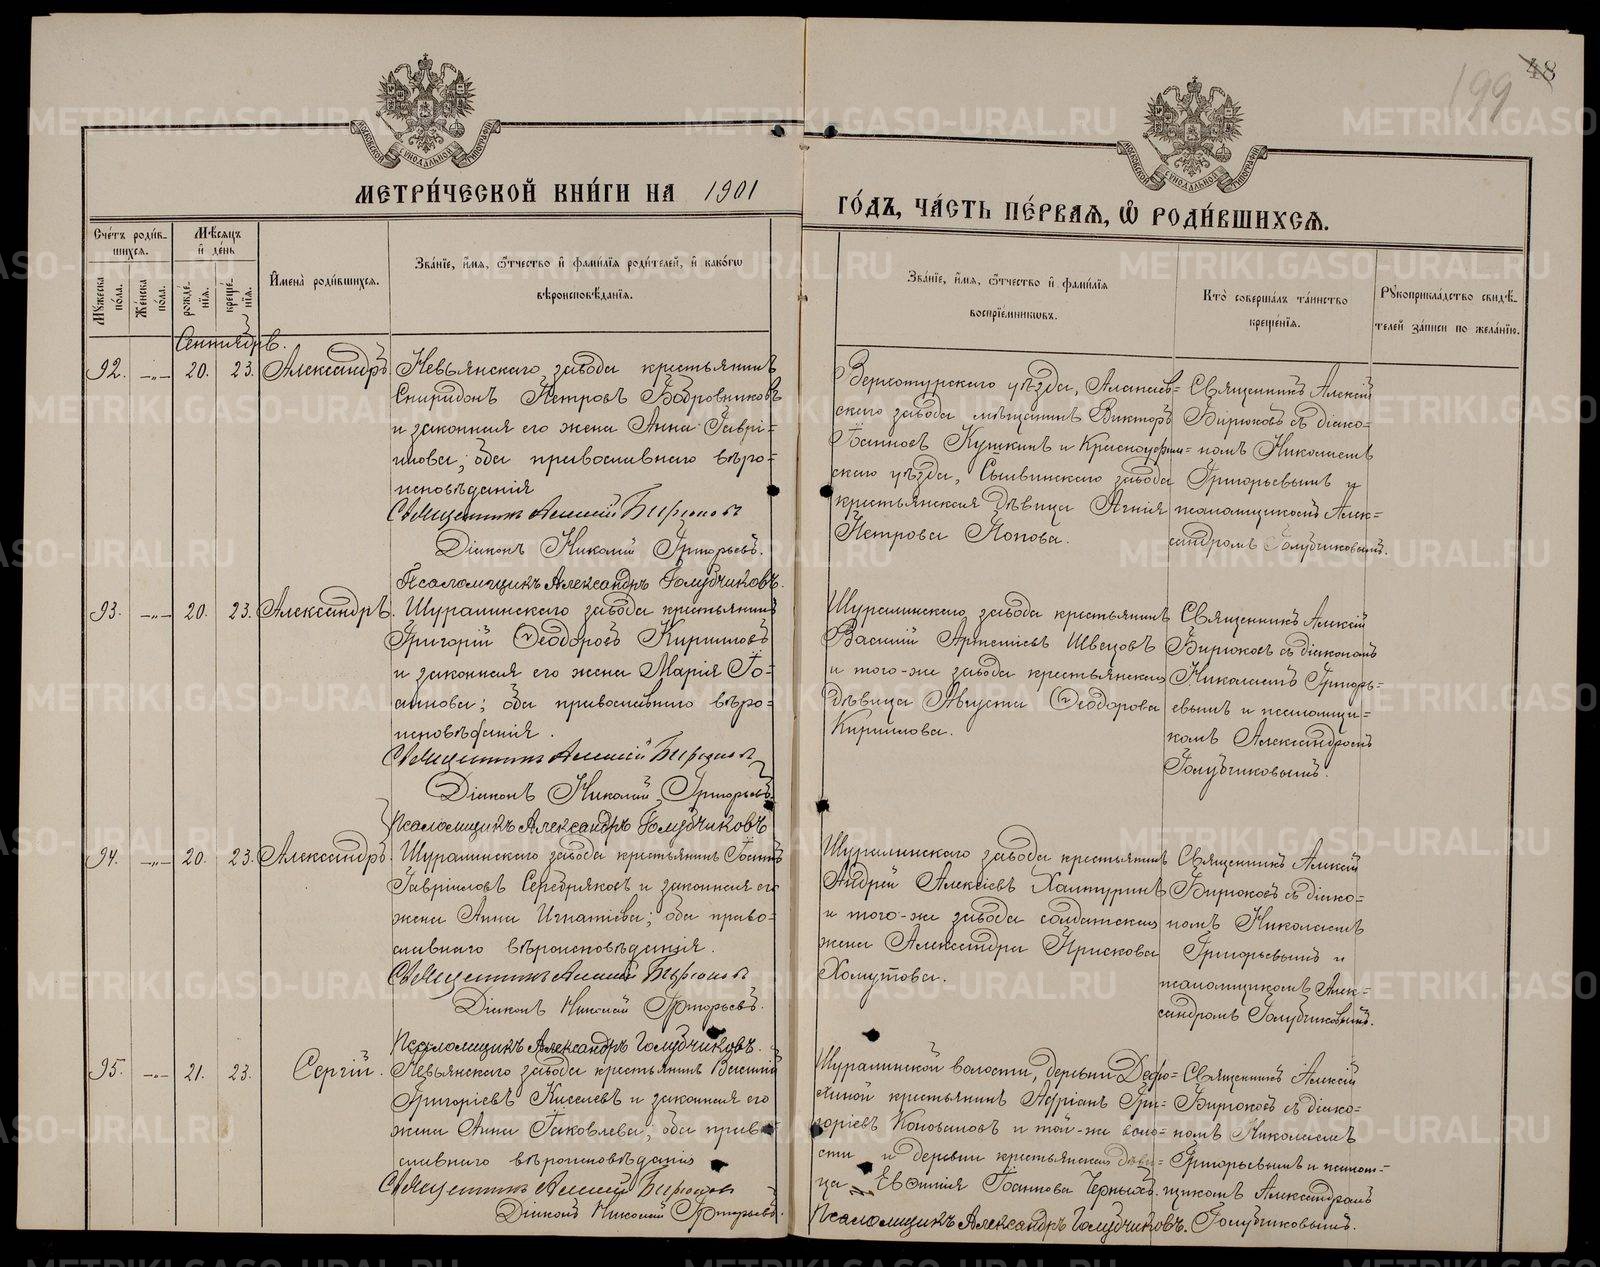 199 48
МОСКОВСКОЙ СѴНОДАЛЬНОЙ ТИПОГРАФІИ
МОСКОВСКОЙ СѴНОДАЛЬНОЙ ТИПОГРАФІИ
МЕТРИ́ЧЕСКОЙ КНИ́ГИ НА 1901
ГО́ДЪ, ЧА́СТЬ ПЕ́РВАѦ, Ѽ РОДИ́ВШИХСѦ.
Сче́тъ роди́в-
шихся.
Мꙋ́жеска по́ла.
Же́нска по́ла.
Мѣ́сяцъ
и де́нь
рожде́-
нїя.
креще́-
нїя.
Имена̀ роди́вшихся.
Зва́нїе, и́мя, ѻ́тчество и фами́лїя роди́телей, и како́гѡ
вѣроисповѣ́данїя.
Зва́нїе, и́мя, ѻ́тчество и фами́лїя
воспрїе́мникѡвъ.
Кто̀ соверша́лъ та́инство
креще́нїя.
Рꙋкоприкла́дство свидѣ́-
телей за́писи по жела́нїю.
Сентябрь.
92. -„- 20. 23. Александръ
Невьянскаго завода крестьянинъ
Спиридонъ Петровъ Бобровниковъ
и законная его жена Анна Гаврі-
илова; оба православнаго вѣро-
исповѣданія
Священникъ Алексій Бирюковъ
Діаконъ Николай Григорьевъ.
Псаломщикъ Александръ Голубчиковъ.
Верхотурскаго уѣзда, Алапаев-
скаго завода мѣщанинъ Викторъ
Іоанновъ Кушкинъ и Красноуфим-
скаго уѣзда, Сылвинскаго завода
крестьянская дѣвица Агнія
Петрова Попова.
Священникъ Алексій
Бирюковъ съ діако-
номъ Николаемъ
Григорьевымъ и
псаломщикомъ Алек-
сандромъ Голубчиковымъ.
93. -„- 20. 23. Александръ.
Шуралинскаго завода крестьянинъ
Григорій Ѳеодоровъ Кирилловъ
и законная его жена Марія Іо-
аннова; оба православнаго вѣро-
исповѣданія.
Священникъ Алексій Бирюковъ
Діаконъ Николай Григорьевъ.
Псаломщикъ Александръ Голубчиковъ
Шуралинскаго завода крестьянинъ
Василій Артемьевъ Швецовъ
и того-же завода крестьянская
дѣвица Августа Ѳеодорова
Кириллова.
Священникъ Алексій
Бирюковъ съ діакономъ
Николаемъ Григорь-
евымъ и псаломщи-
комъ Александромъ
Голубчиковымъ.
94. -„- 20. 23. Александръ.
Шуралинскаго завода крестьянинъ Іоаннъ
Гавріиловъ Серебряковъ и законная его
жена Анна Игнатіева; оба право-
славнаго вѣроисповѣданія.
Священникъ Алексій Бирюковъ
Діаконъ Николай Григорьевъ.
Псаломщикъ Александръ Голубчиковъ.
Шуралинскаго завода крестьянинъ
Андрей Алексіевъ Хамтуринъ
и того-же завода солдатская
жена Александра Прискова
Хомутова.
Священникъ Алексій
Бирюковъ съ діако-
номъ Николаемъ
Григорьевымъ и
псаломщикомъ Алек-
сандромъ Голубчиковымъ.
95. -„- 21. 23. Сергій.
Невьянскаго завода крестьянинъ Василій
Григоріевъ Киселевъ и законная его
жена Анна Іаковлева; оба право-
славнаго вѣроисповѣданія
Священникъ Алексій Бирюковъ
Діаконъ Николай Григорьевъ.
Шуралинской волости, деревни
крестьянинъ Адріанъ Гри-
горіевъ Коноваловъ и той-же воло-
сти и деревни крестьянская дѣви-
ца Евѳимія Іоаннова Черныхъ.
Псаломщикъ Александръ Голубчиковъ.
Священникъ Алексій
Бирюковъ съ діако-
номъ Николаемъ
Григорьевымъ и псалом-
щикомъ Александромъ
Голубчиковымъ.